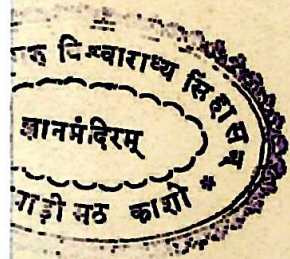 विश्वाराध्य सिंहासन
ज्ञानमंदिरम्
मठ काशी